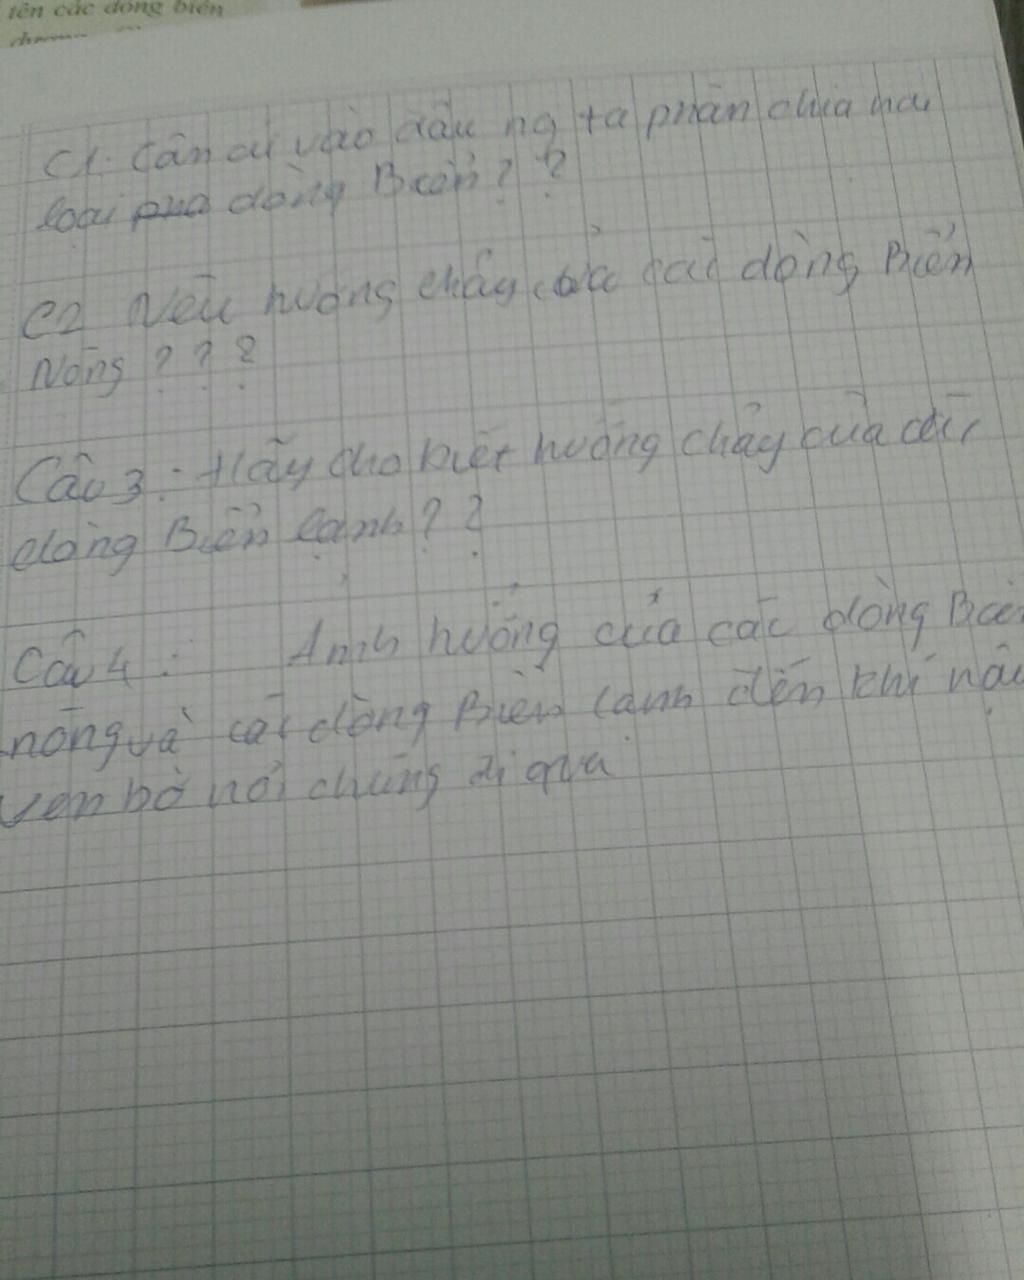 tên các dòng biển
C1. Căn cứ vào đâu ng ta phân chia hai
loại dòng Biển? ?
C2 Nêu hướng chảy của các dòng Biển
Nóng ? ? ?
Câu 3 : Hãy cho biết hướng chảy của các
dòng Biển lạnh? ?
Câu 4 : Ảnh hưởng của các dòng Biển
nóng và các dòng Biển lạnh đến khí hậu
ven bờ nơi chúng đi qua